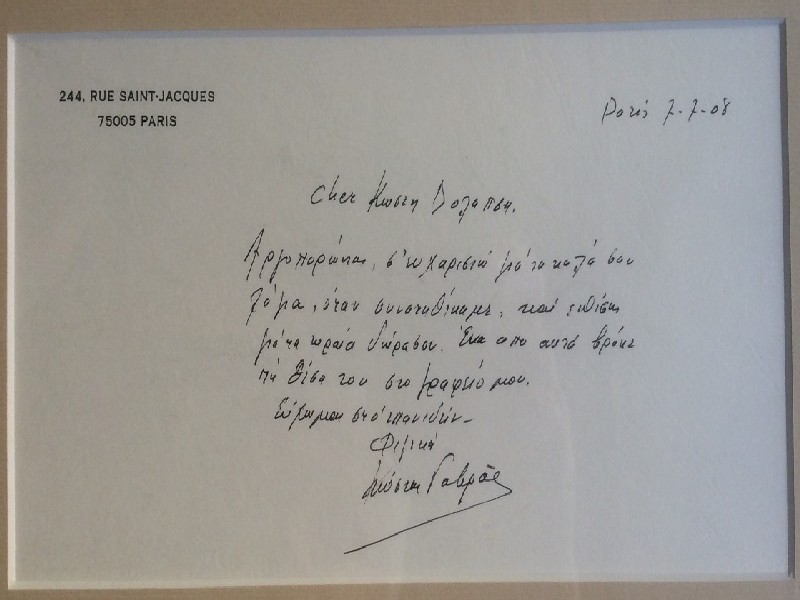 244, RUE SAINT-JACQUES
75005 PARIS
Paris 7-7-08
Cher Κώστη
Αργοπορώντας, σ'ευχαριστώ γιά τα καλά σου
λόγια, όταν συναντηθήκαμε, καί επίσης
γιά τα ωραία δώρα σου. Ένα απο αυτά βρήκε
τη θέση του στο γραφείο μου.
Εύχομαι στό επανιδείν -
Φιλικά
Κώστας Γαβράς